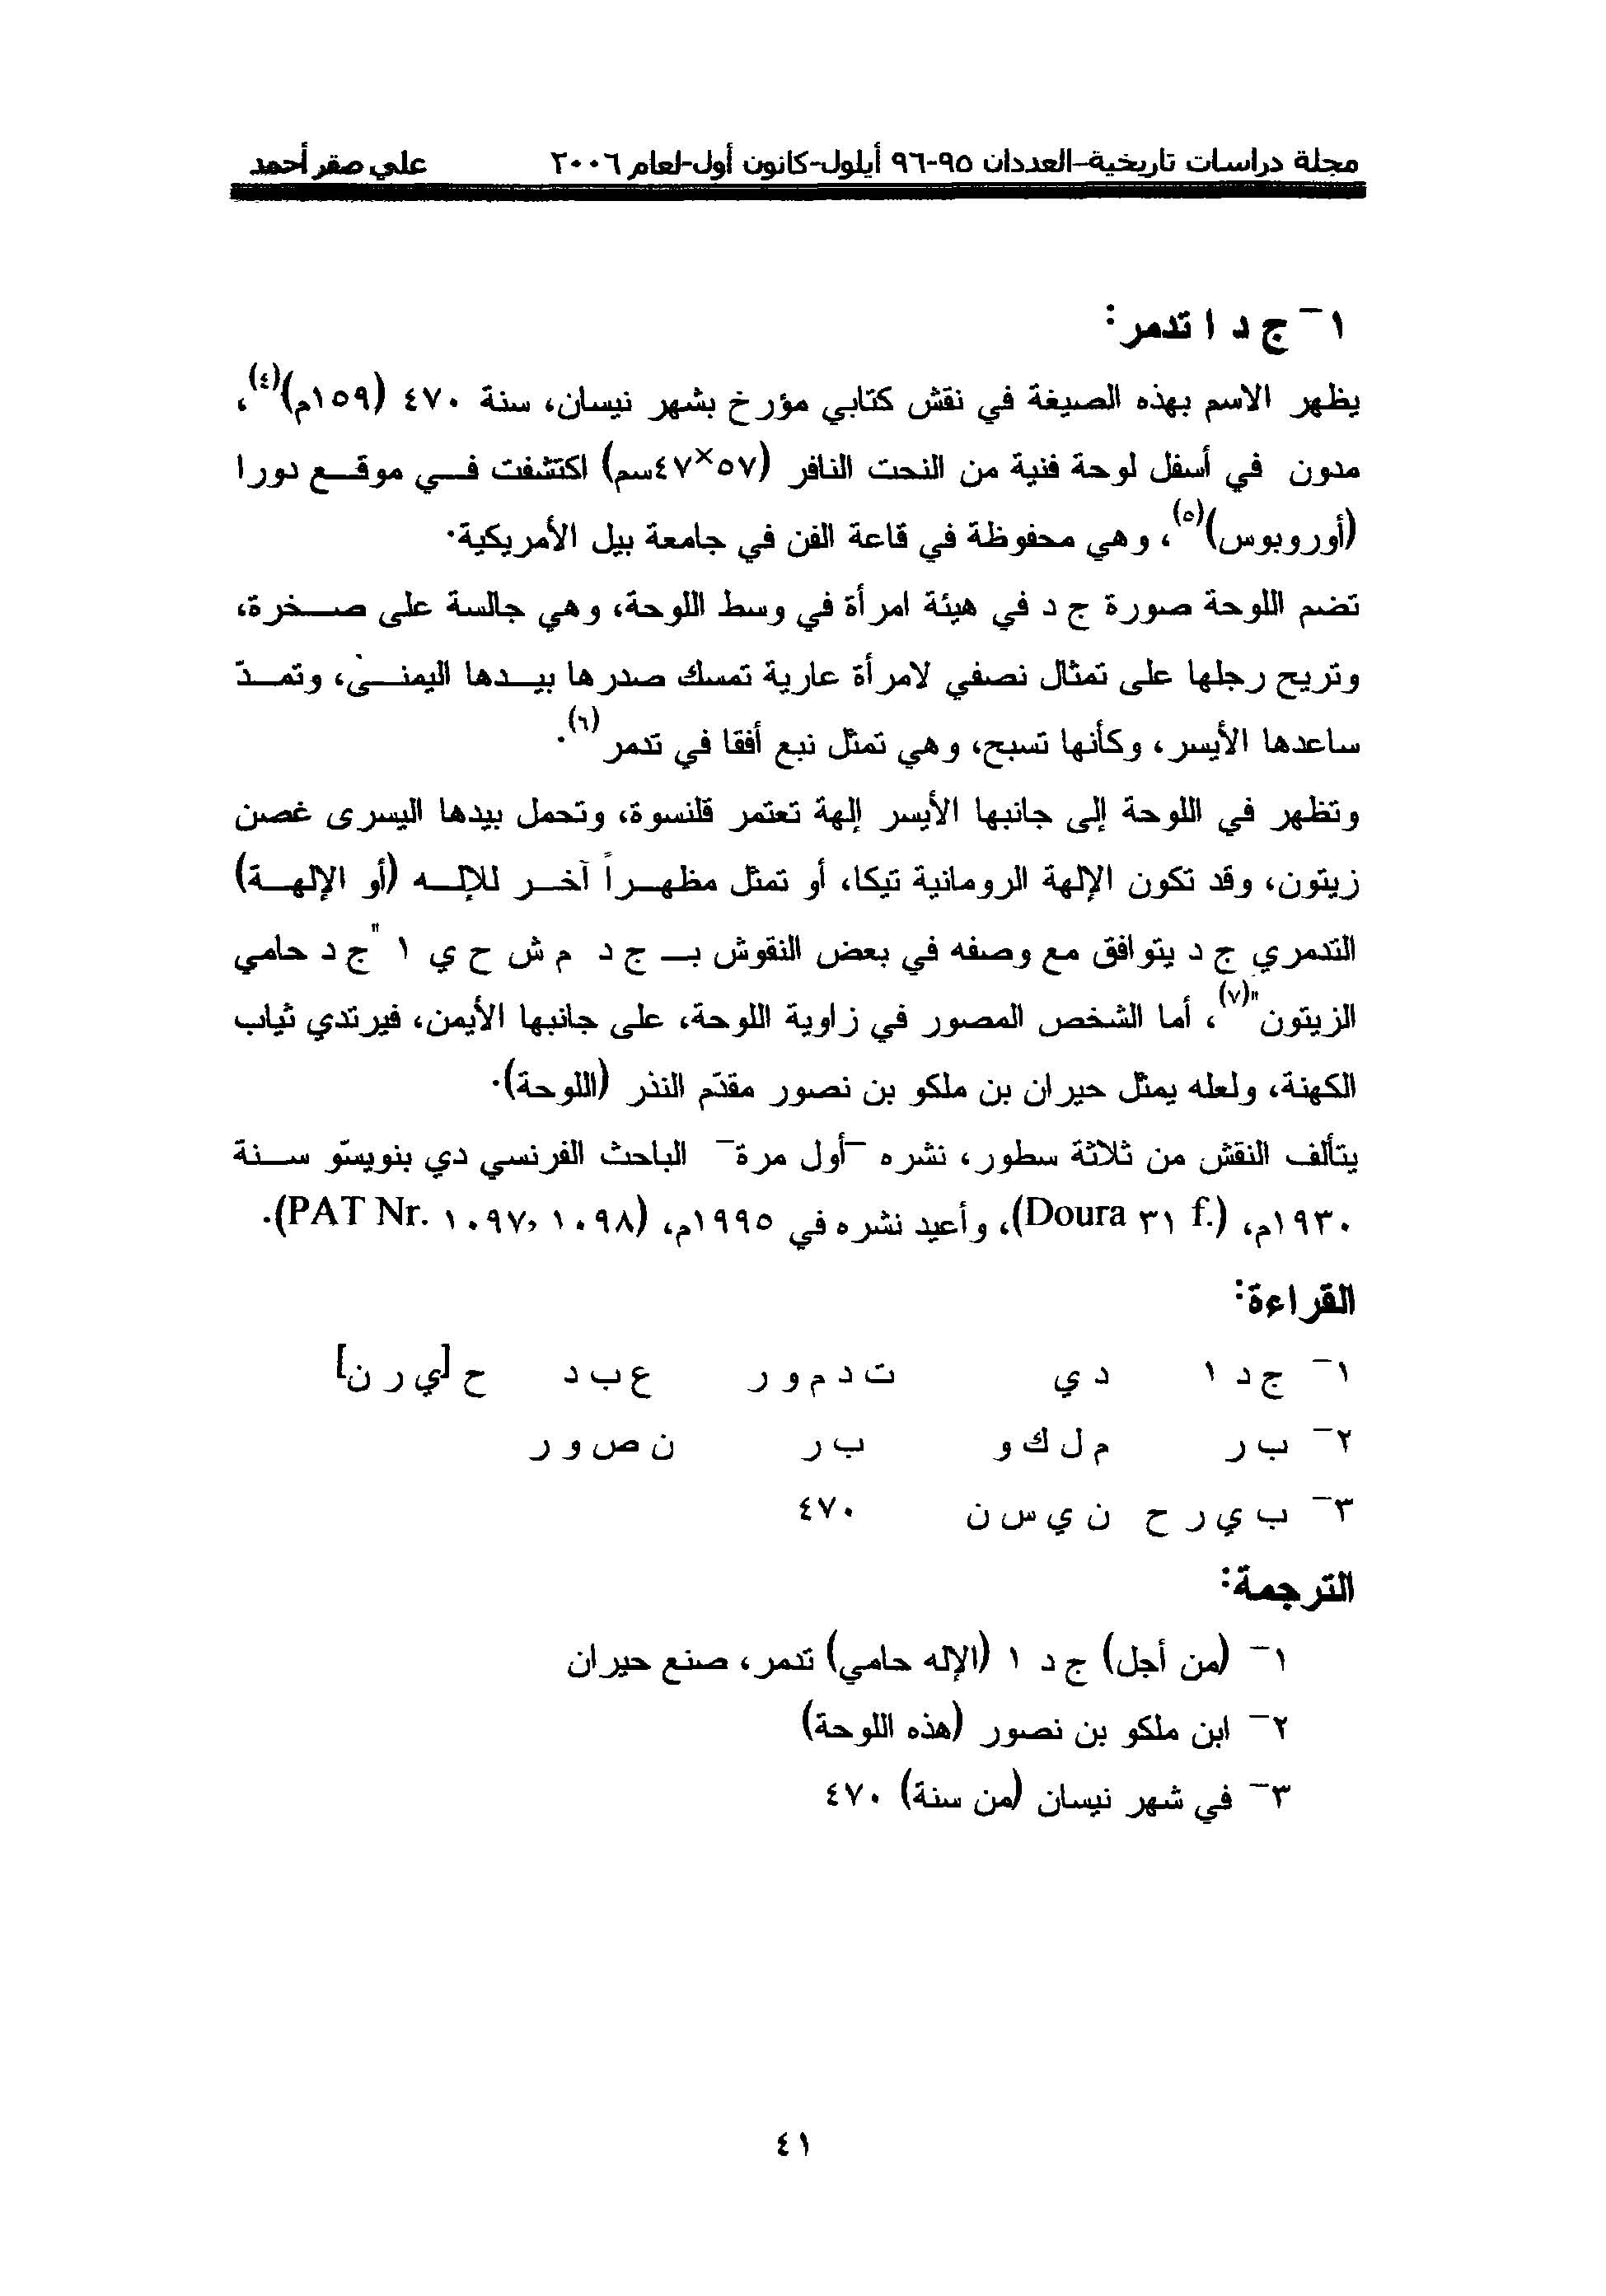 مجلة دراسات تاريخية-العددان ٩٥-٩٦ أيلول-كانون أول-لعام ٢٠٠٦ علي صقر أحمد
١- ج د ا تدمر:
يظهر الاسم بهذه الصيغة في نقش كتابي مؤرخ بشهر نيسان، سنة ٤٧٠ (١٥٩م)(٤)،
مدون في أسفل لوحة فنية من النحت النافر (٥٧×٤٧سم) اكتشفت في موقع دورا
(أوروبوس)(٥)، وهي محفوظة في قاعة الفن في جامعة بيل الأمريكية.
تضم اللوحة صورة ج د في هيئة امرأة في وسط اللوحة، وهي جالسة على صخرة،
وتريح رجلها على تمثال نصفي لامرأة عارية تمسك صدرها بيدها اليمنى، وتمدّ
ساعدها الأيسر، وكأنها تسبح، وهي تمثل نبع أفقا في تدمر(٦).
وتظهر في اللوحة إلى جانبها الأيسر إلهة تعتمر قلنسوة، وتحمل بيدها اليسرى غصن
زيتون، وقد تكون الإلهة الرومانية تيكا، أو تمثل مظهراً آخر للإله (أو الإلهة)
التدمري ج د يتوافق مع وصفه في بعض النقوش بـ ج د م ش ح ي ا "ج د حامي
الزيتون"(٧)، أما الشخص المصور في زاوية اللوحة، على جانبها الأيمن، فيرتدي ثياب
الكهنة، ولعله يمثل حيران بن ملكو بن نصور مقدّم النذر (اللوحة).
يتألف النقش من ثلاثة سطور، نشره -أول مرة- الباحث الفرنسي دي بنويسّو سنة
١٩٣٠م، (Doura ٣١ f.)، وأعيد نشره في ١٩٩٥م، (PAT Nr. ١٠٩٧, ١٠٩٨).
القراءة:
١- ج د ا د ي ت د م و ر ع ب د ح [ي ر ن]
٢- ب ر م ل ك و ب ر ن ص و ر
٣- ب ي ر ح ن ي س ن ٤٧٠
الترجمة:
١- (من أجل) ج د ا (الإله حامي) تدمر، صنع حيران
٢- ابن ملكو بن نصور (هذه اللوحة)
٣- في شهر نيسان (من سنة) ٤٧٠
٤١